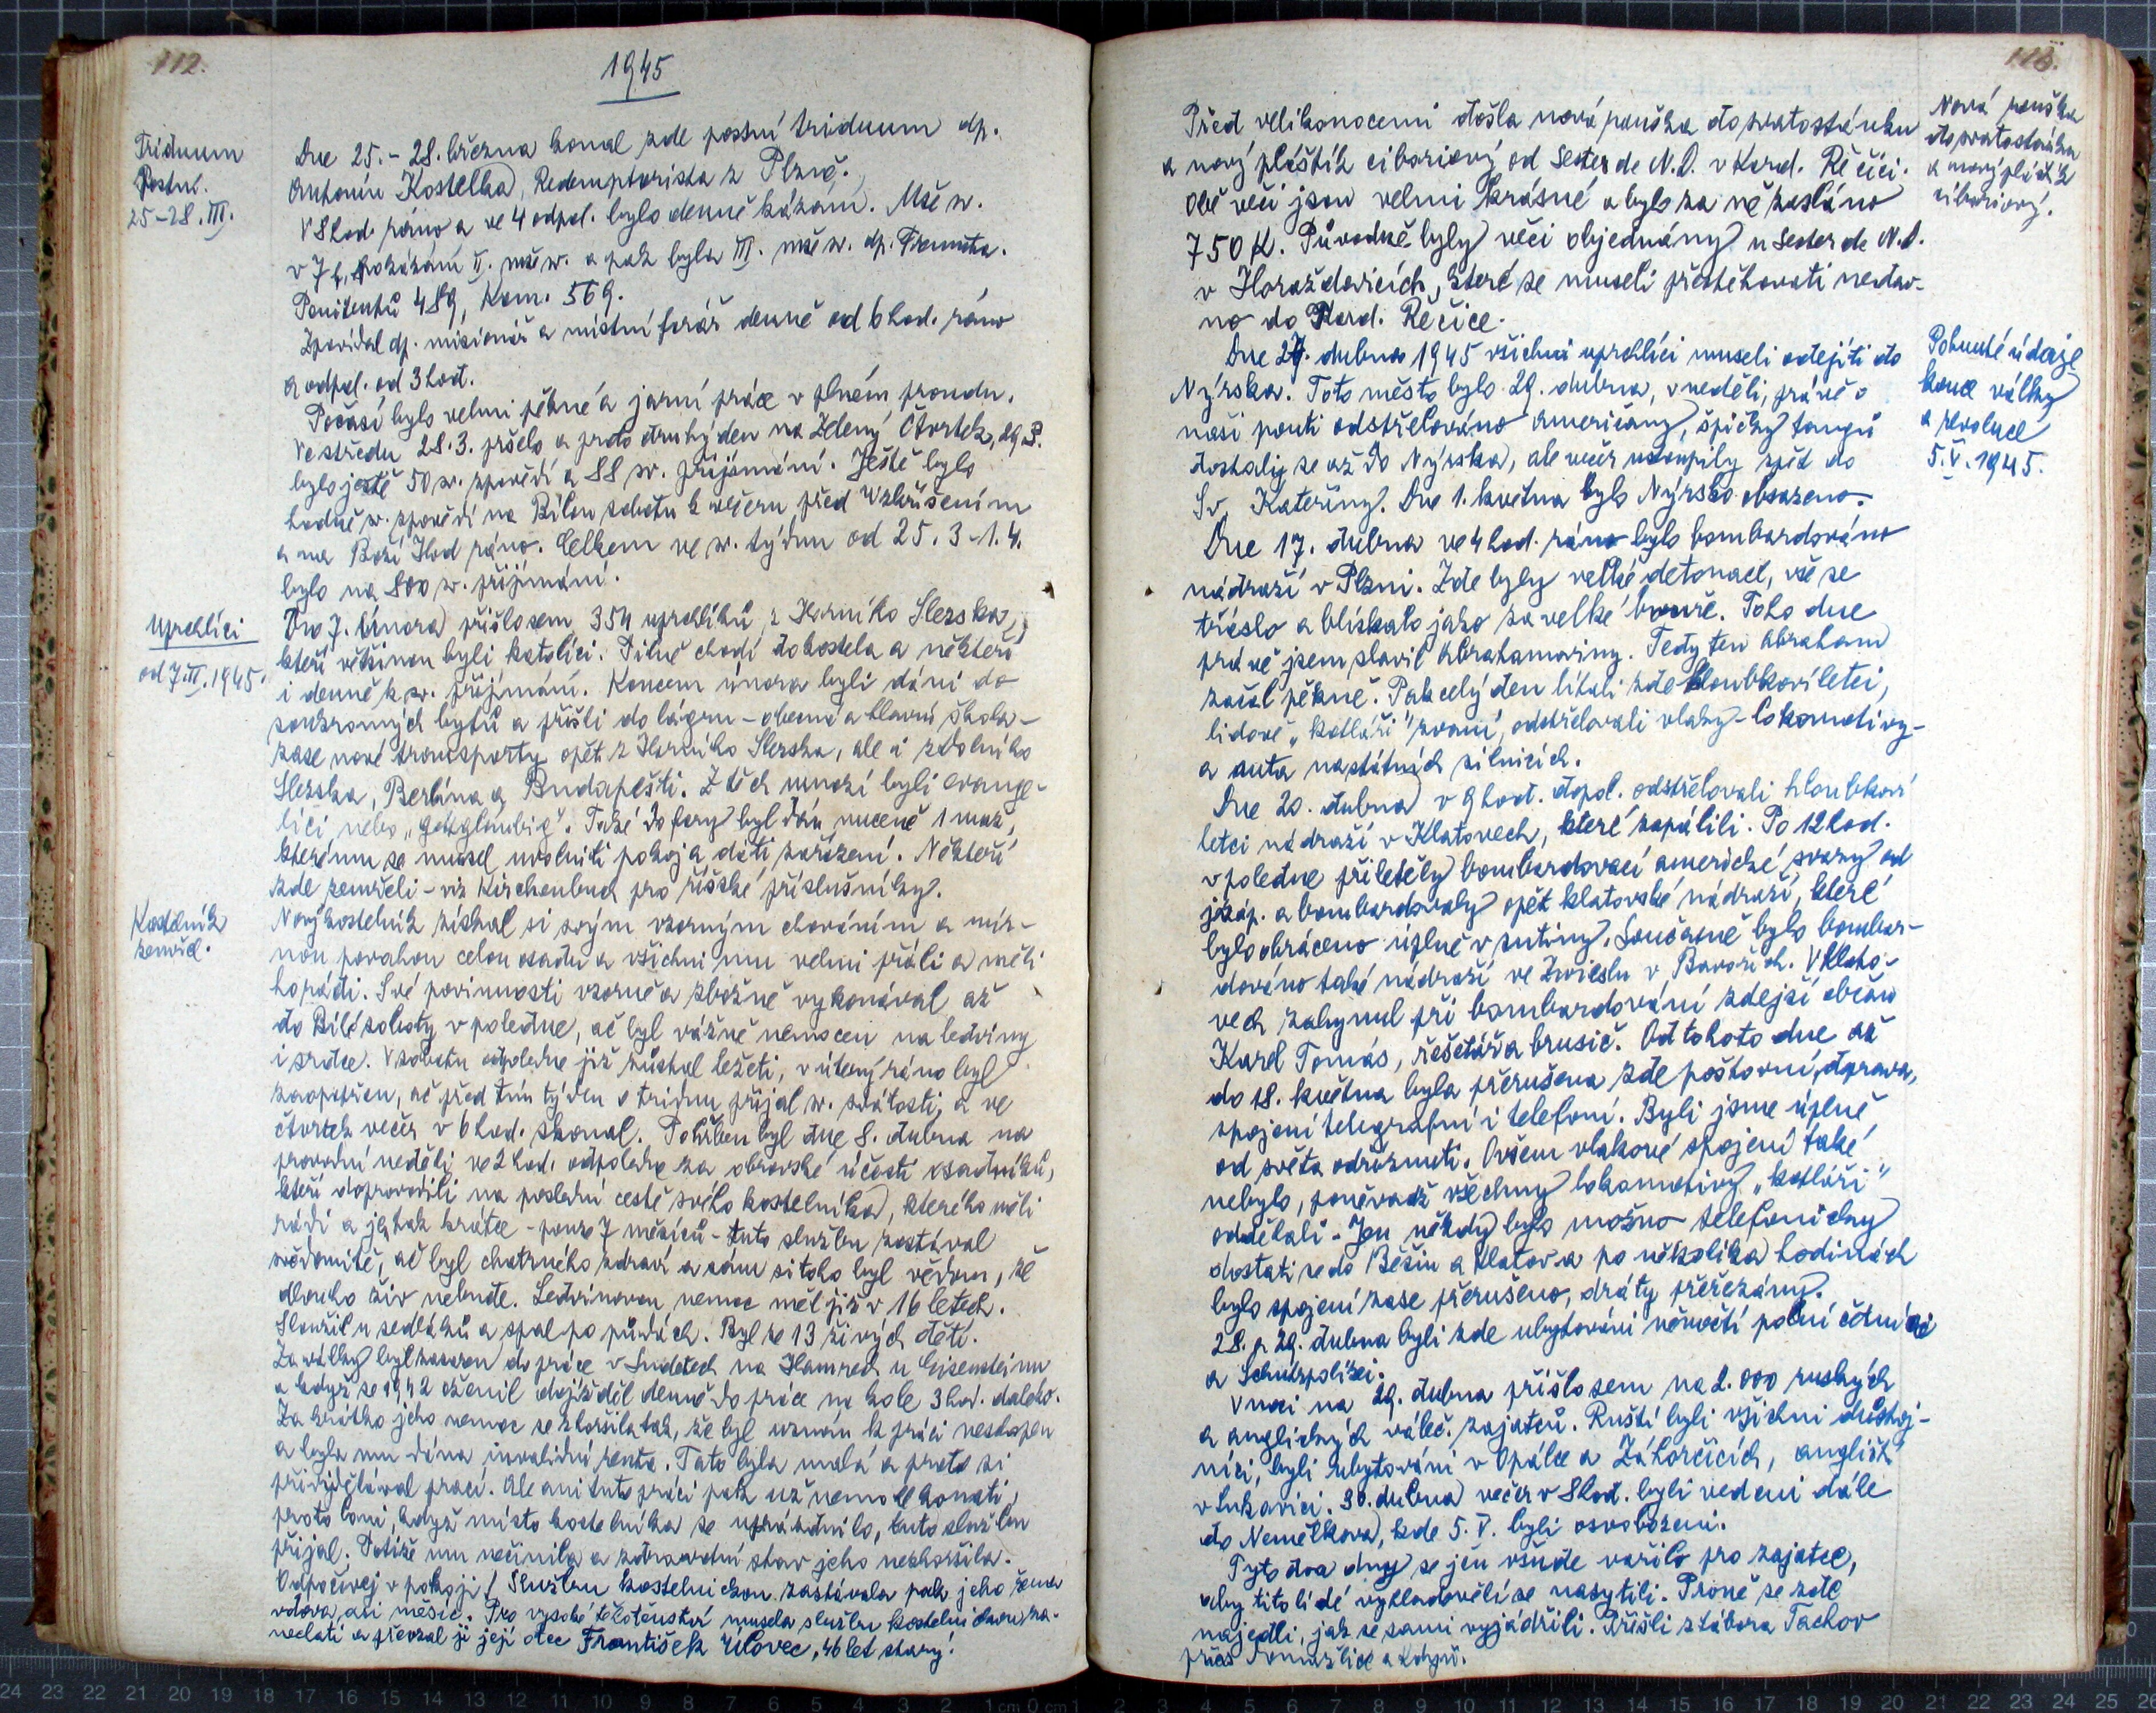 112.
1945
Triduum
Postní.
25-28.III.
Dne 25.- 28. března konal zde postní triduum dp.
Antonín Kostelka, Redemptorista z Plzně.
V 8 hod. ráno a ve 4 odpol. bylo denně kázání. Mše sv.
v 7 h, po kázání II. mše sv. a pak byla III. mše sv. dp.
Penitentů 489, kom. 569.
Zpovídal dp. misionář a místní farář denně od 6 hod. ráno
a odpol. od 3 hod.
Počasí bylo velmi pěkné a jarní práce v plném proudu.
Ve středu 28.3. pršelo a proto druhý den na Zelený Čtvrtek, 29.3.
bylo ještě 50 sv. zpovědí a 88 sv. přijímání. Ještě bylo
hodně sv. zpovědí na Bílou sobotu k večeru před Vzkříšením
a na Boží Hod ráno. Celkem ve sv. týdnu od 25.3-1.4.
bylo na 800 sv. přijímání.
Uprchlíci
od 7.II.1945.
Dne 7. února přišlo sem 354 uprchlíků z Horního Slezska,
kteří většinou byli katolíci. Pilně chodí do kostela a někteří
i denně k sv. přijímání. Koncem února byli dáni do
soukromých bytů a přišli do lágru - obecná a hlavní škola -
zase nové transporty opět z Horního Slezska, ale i z Dolního
Slezska, Berlína a Budapešti. Z těch mnozí byli evange-
líci nebo „gottgläubig". Také do fary byl dán nuceně 1 muž,
kterému se musel uvolniti pokoj a dáti zařízení. Někteří
zde zemřeli - viz Kirchenbuch pro říšské příslušníky.
Kostelník
zemřel.
Nový kostelník získal si svým vzorným chováním a mír-
nou povahou celou osadu a všichni mu velmi přáli a měli
ho rádi. Své povinnosti vzorně a zbožně vykonával až
do Bílé soboty v poledne, ač byl vážně nemocen na ledviny
i srdce. V sobotu odpoledne již zůstal ležeti, v úterý ráno byl
zaopatřen, ač před tím týden o triduu přijal sv. svátosti, a ve
čtvrtek večer v 6 hod. skonal. Pohřben byl dne 8. dubna na
provodní neděli ve 2 hod. odpoledne za obrovské účasti osadníků,
kteří doprovodili na poslední cestě svého kostelníka, kterého měli
rádi a jen tak krátce - pouze 7 měsíců - tuto službu zastával
svědomitě, ač byl chatrného zdraví a sám si toho byl vědom, že
dlouho živ nebude. Ledvinovou nemoc měl již v 16 letech.
Sloužil u sedláků a spal po půdách. Byl ze 13 živých dětí.
Za války byl nasazen do práce v Sudetech na Hamrech u Eisensteinu
a když se 1942 oženil dojížděl denně do práce na kole 3 hod. daleko.
Za krátko jeho nemoc se zhoršila tak, že byl uznán k práci neschopen
a byla mu dána invalidní renta. Tato byla malá a proto si
přivydělával prací. Ale ani tuto práci pak už nemohl konati,
proto loni, když místo kostelníka se uprázdnilo, tuto službu
přijal. Potíže mu nečinila a zdravotní stav jeho nezhoršila.
Odpočívej v pokoji! Službu kostelnickou zastávala pak jeho žena
vdova, asi měsíc. Pro vysoké těhotenství musela službu kostelnickou za-
nechati a převzal ji její otec František Uilovec, 46 let starý.
113.
Nová rouška
do svatostánku
a nový pláštík
ciboriový.
Před velikonocemi došla nová rouška do svatostánku
a nový pláštík ciboriový od Sester de N.D. v Kard. Řečici.
Obě věci jsou velmi krásné a bylo za ně zasláno
750 K. Původně byly věci objednány u Sester de N.D.
v Horažďovicích, které se museli přestěhovati nedáv-
no do Kard. Řečice.
Pohnuté údaje
konce války
a revoluce
5.V.1945.
Dne 27. dubna 1945 všichni uprchlíci museli odejíti do
Nýrska. Toto město bylo 29. dubna, v neděli, právě o
naší pouti odstřelováno Američany, špičky tanků
dostaly se až do Nýrska, ale večer ustoupily zpět do
Sv. Kateřiny. Dne 1. května bylo Nýrsko obsazeno.
Dne 17. dubna ve 4 hod. ráno bylo bombardováno
nádraží v Plzni. Zde byly velké detonace, vše se
třáslo a blýskalo jako za velké bouře. Toho dne
právě jsem slavil Abrahamoviny. Tedy ten Abraham
začal pěkně. Pak celý den lítali zde hloubkoví letci,
lidově „kotláři" zvaní, odstřelovali vlaky - lokomotivy -
a auta na státních silnicích.
Dne 20. dubna v 9 hod. dopol. odstřelovali hloubkoví
letci nádraží v Klatovech, které zapálili. Po 12 hod.
v poledne přiletěly bombardovací americké svazy od
jzáp. a bombardovaly opět klatovské nádraží, které
bylo obráceno úplně v sutiny. Současně bylo bombar-
dováno také nádraží ve Zwieslu v Bavořích. V Klato-
vech zahynul při bombardování zdejší občan
Karel Tomás, řešetář a brusič. Od tohoto dne až
do 18. května byla přerušena zde poštovní doprava,
spojení telegrafní i telefoní. Byli jsme úplně
od světa odříznuti. Ovšem vlakové spojení také
nebylo, poněvadž všechny lokomotivy „kotláři"
oddělali. Jen někdy bylo možno telefonicky
dostati se do Běšin a Klatov a po několika hodinách
bylo spojení zase přerušeno, dráty přeřezány.
28. a 29. dubna byli zde ubytováni němečtí polní četníci
a Schutzpolizei.
V noci na 29. dubna přišlo sem na 2.000 ruských
a anglických váleč. zajatců. Ruští byli všichni důstoj-
níci, byli ubytováni v Opálce a Záhorčicích, angličtí
v Lukavici. 30. dubna večer v 8 hod. byli vedeni dále
do Nemělkova, kde 5.V. byli osvobozeni.
Tyto dva dny se jen všude vařilo pro zajatce,
aby tito lidé vyhladovělí se nasytili. Prvně se zde
najedli, jak se sami vyjádřili. Přišli z tábora Tachov
přes Domažlice a Kdyni.